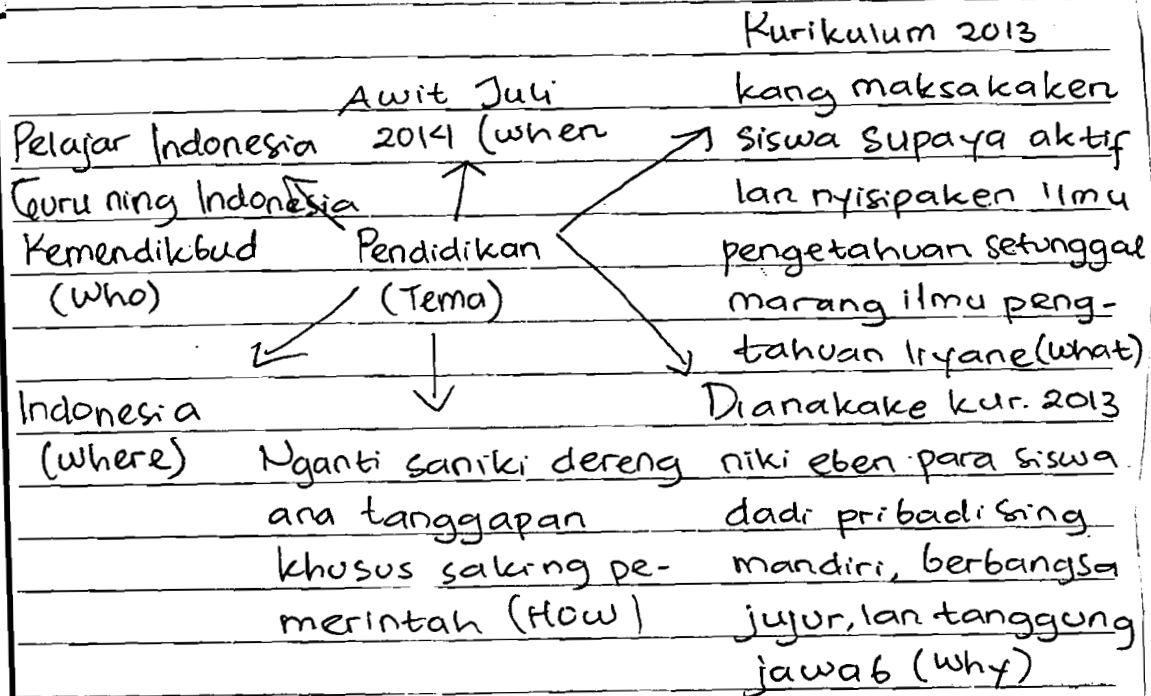 Kurikulum 2013
kang maksakaken
siswa supaya aktif
lan nyisipaken ilmu
pengetahuan setunggal
marang ilmu peng-
tahuan liyane (what)
Awit Juli
2014 (when
Pelajar Indonesia
Guru ning Indonesia
Kemendikbud
(Who)
Pendidikan
(Tema)
Indonesia
(where)
Nganti saniki dereng
ana tanggapan
khusus saking pe-
merintah (How)
Dianakake kur. 2013
niki eben para siswa
dadi pribadi sing
mandiri, berbangsa
jujur, lan tanggung
jawab (why)